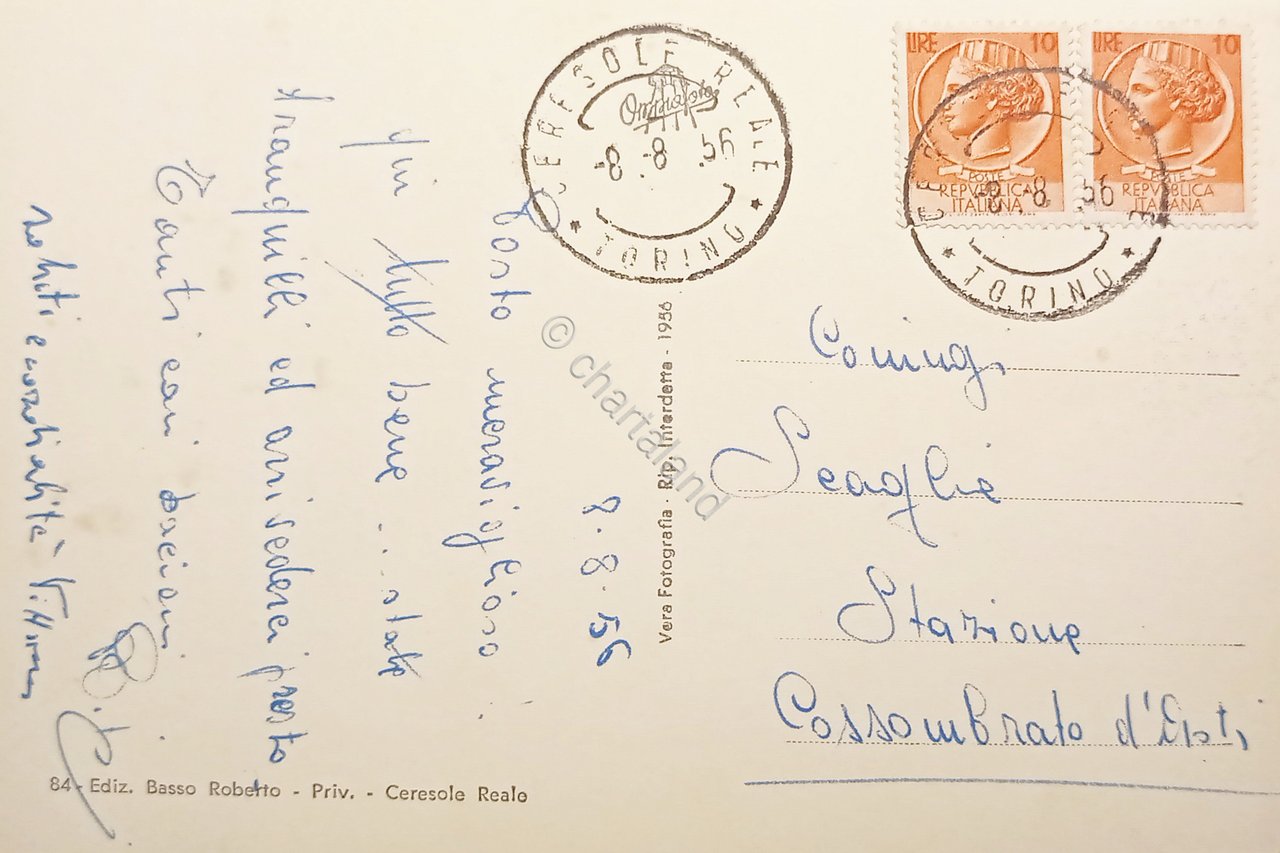 8.8.56
Posto meraviglioso.
qui tutto bene... state
tranquilli ed arrivederci presto
Tanti cari bacioni
saluti e cordialità
CERESOLE REALE
-8.-8.56
TORINO
LIRE 10
POSTE
REPVBBLICA
ITALIANA
LIRE 10
POSTE
REPVBBLICA
ITALIANA
-8.-8.56
TORINO
Coniugi
Scaglie
Stazione
Cossombrato d'Asti
Vera Fotografia - Rip. Interdetta - 1956
84 - Ediz. Basso Roberto - Priv. - Ceresole Reale
© chartaland